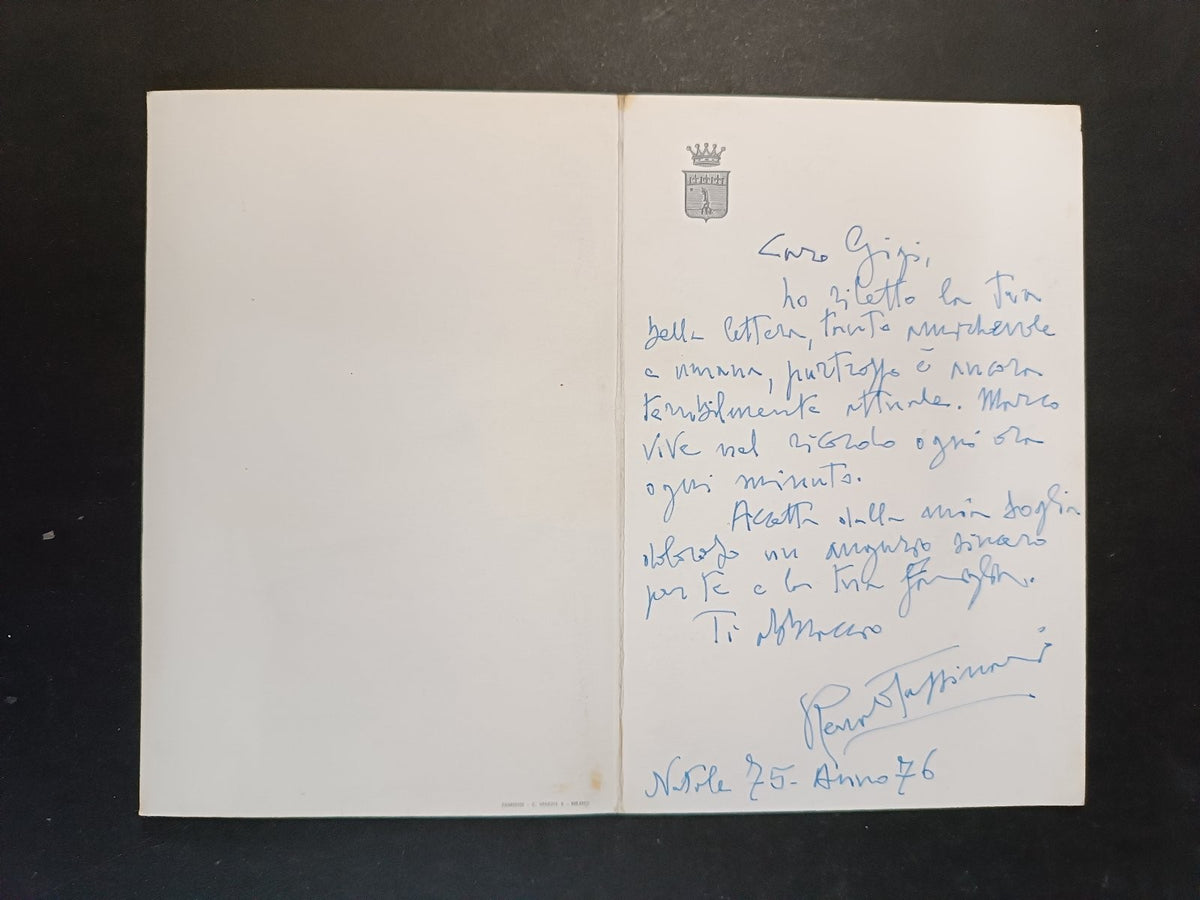 Caro Gigi,
ho riletto la tua
bella lettera, tanto amichevole
e umana, purtroppo è ancora
terribilmente attuale. Marco
vive nel ricordo ogni ora
ogni minuto.
Accetta dalla mia soglia
dolorosa un augurio sincero
per te e la tua famiglia.
Ti abbraccio
Renato Tassinari
Natale 75 - Anno 76
MILANO